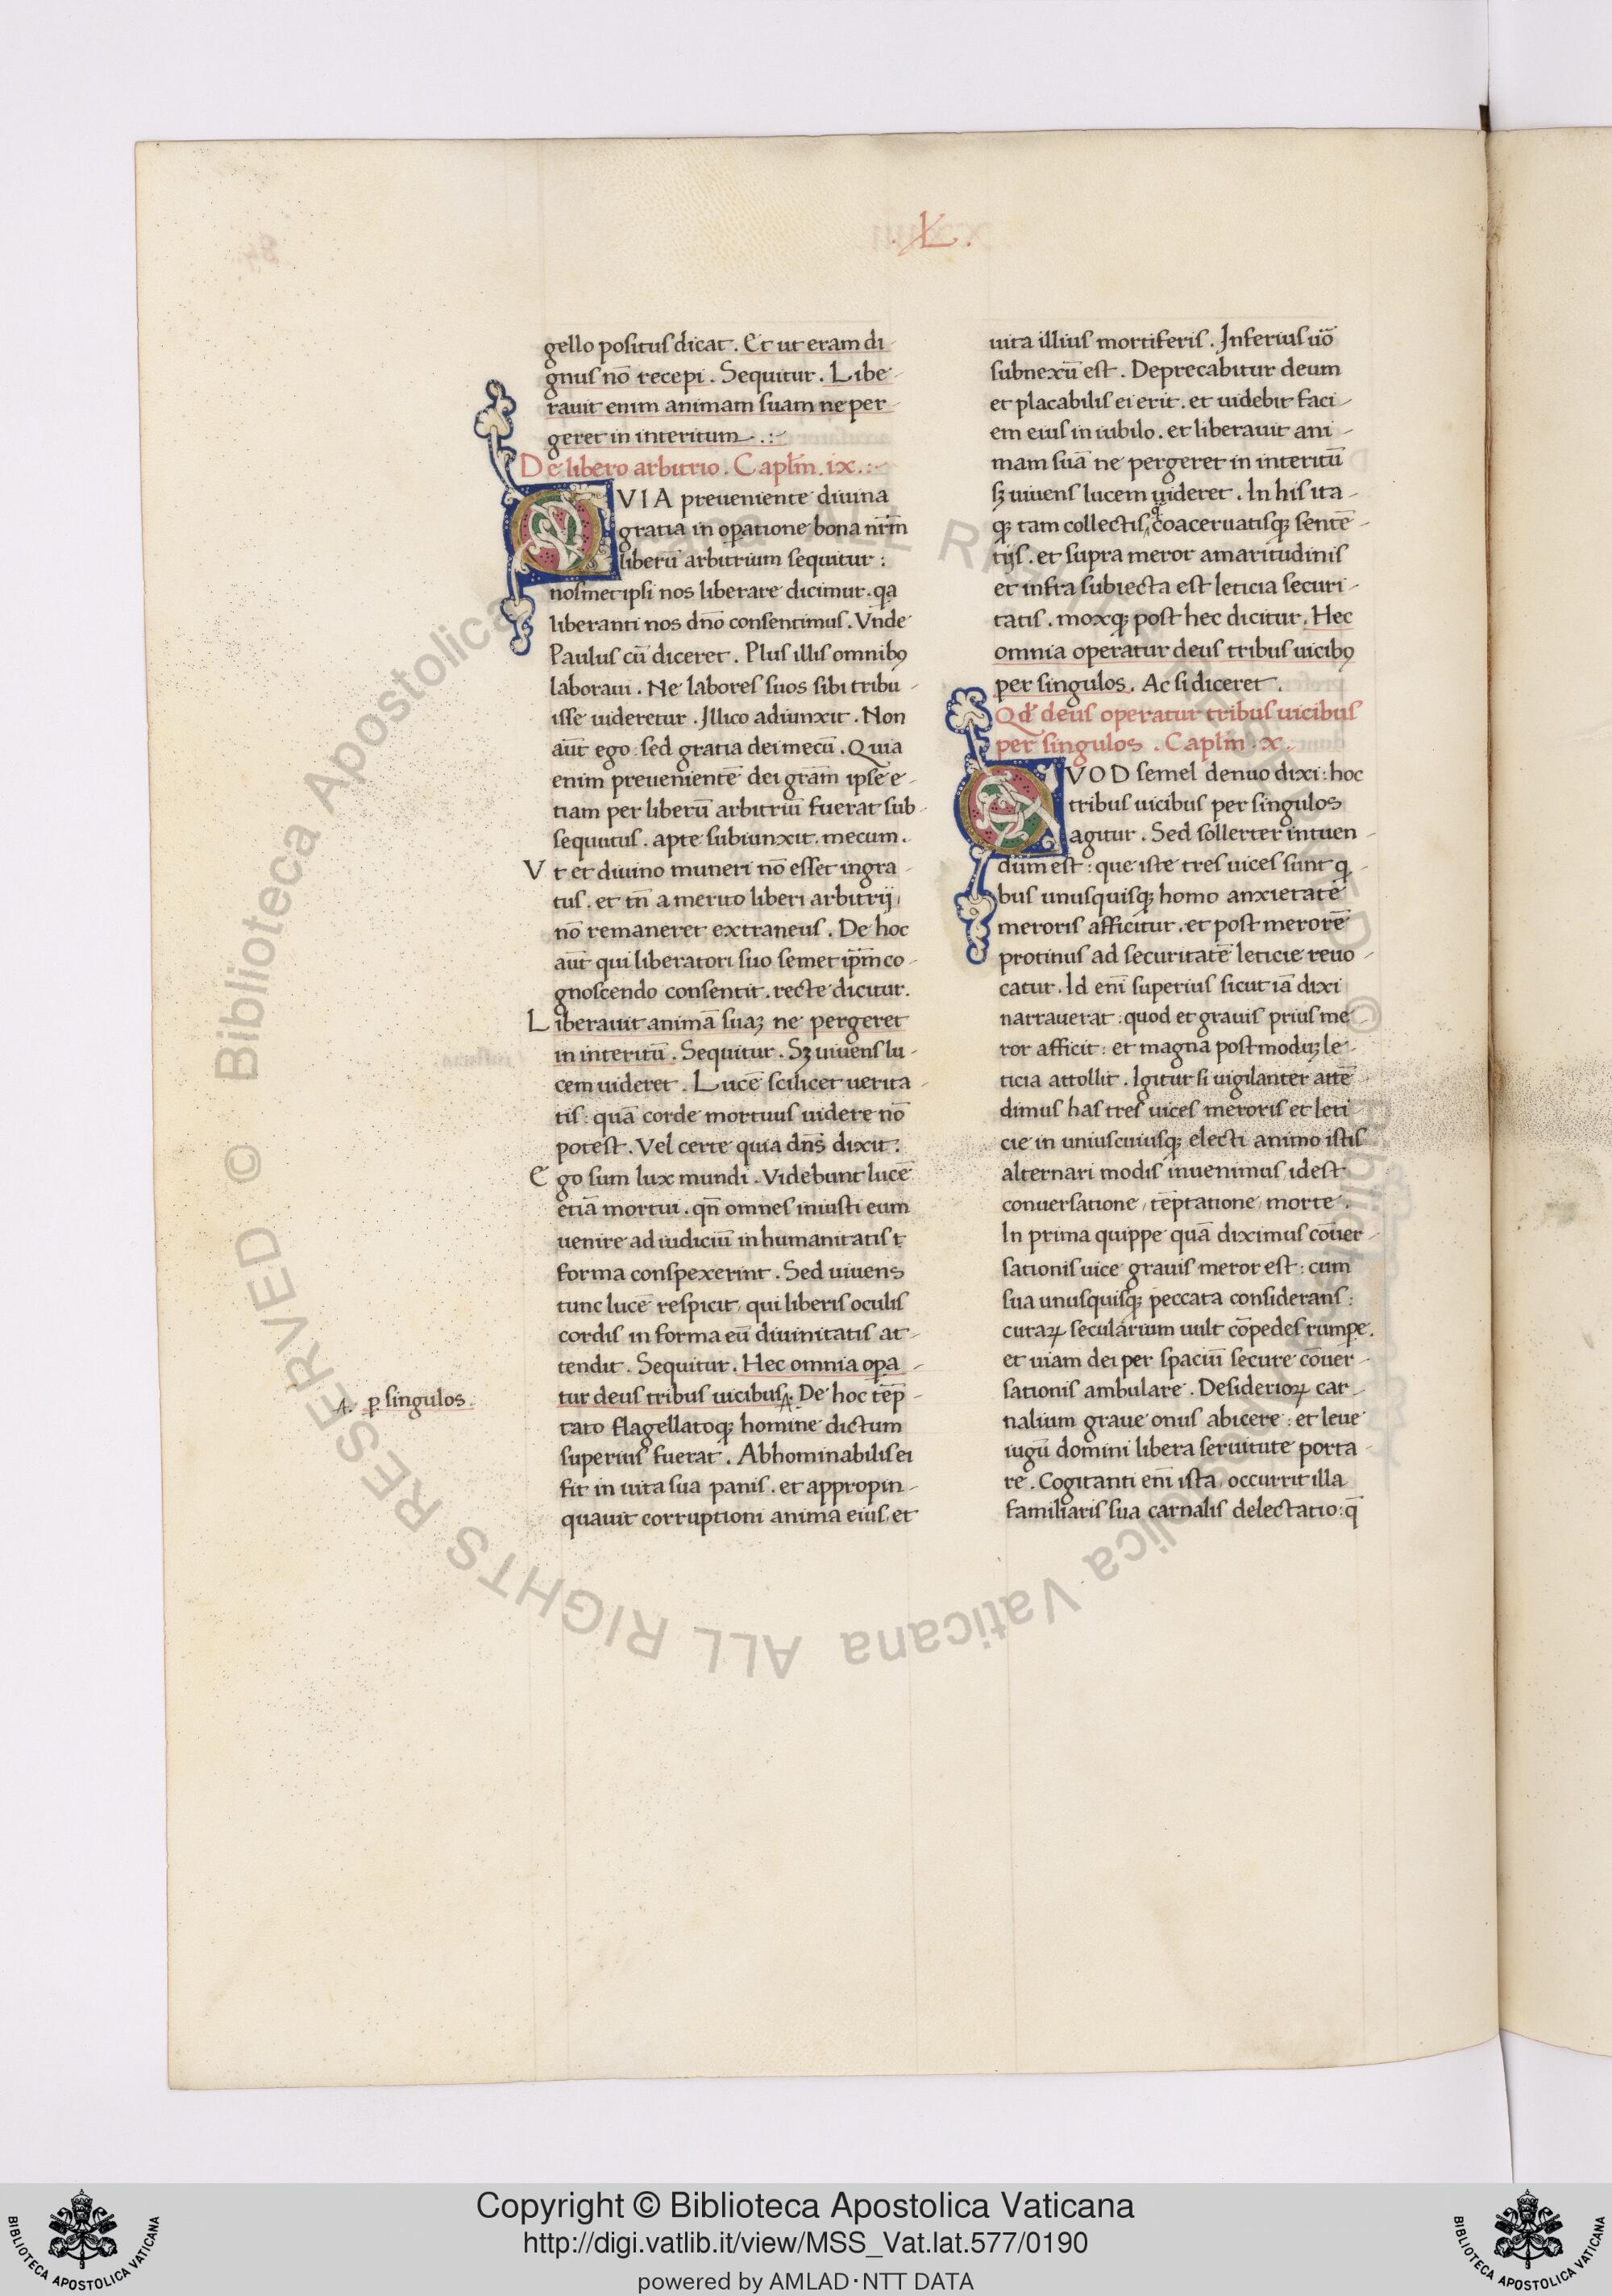 .L.
gello positus dicat. Et ut eram di-
gnus nō recepi. Sequitur. Libe-
rauit enim animam suam ne per-
geret in interitum .:-
De libero arbitrio. Capl̄m .ix.:-
QVIA preueniente diuina
gratia in oꝑatione bona nr̄m
liberū arbitrium sequitur:
nosmet ipsi nos liberare dicimur. qa
liberanti nos dn̄o consentimus. Vnde
Paulus cū diceret. Plus illis omnibꝯ
laboraui. Ne labores suos sibi tribu-
isse uideretur. Illico adiunxit. Non
aūt ego: sed gratia dei mecū. Quia
enim preuenientē dei grām ipse e-
tiam per liberū arbitriū fuerat sub-
sequutus. apte subiunxit. mecum.
Vt et diuino muneri nō esset ingra-
tus. et tn̄ a merito liberi arbitrij
nō remaneret extraneus. De hoc
aūt qui liberatori suo semet ip̄m co-
gnoscendo consentit. recte dicitur.
Liberauit animā suaꝫ ne pergeret
in interitū. Sequitur. Sꝫ uiuens lu-
cem uideret. Lucē scilicet uerita-
tis: quā corde mortuus uidere nō
potest. Vel certe quia dn̄s dixit:
Ego sum lux mundi. Videbunt lucē
etiā mortui. qn̄ omnes iniusti eum
uenire ad iudiciū in humanitatis
forma conspexerint. Sed uiuens
tunc lucē respicit, qui liberis oculis
cordis in forma eū diuinitatis at-
tendit. Sequitur. Hec omnia oꝑa-
tur deus tribus uicibus. De hoc tēp-
.A. ꝑ singulos.
tato flagellatoqꝫ homine dictum
superius fuerat. Abhominabilis ei
fit in uita sua panis. et appropin-
quauit corruptioni anima eius, et
uita illius mortiferis. Inferius uō
subnexū est. Deprecabitur deum
et placabilis ei erit. et uidebit faci-
em eius in iubilo. et liberauit ani-
mam suā ne pergeret in interitū
sꝫ uiuens lucem uideret. In his ita-
qꝫ tam collectis, coaceruatisqꝫ sentē-
tijs. et supra meror amaritudinis
et infra subiecta est leticia securi-
tatis. moxqꝫ post hec dicitur. Hec
omnia operatur deus tribus uicibꝯ
per singulos. Ac si diceret.
Qd̄ deus operatur tribus uicibus
per singulos. Capl̄m .x.
QVOD semel denuo dixi: hoc
tribus uicibus per singulos
agitur. Sed sollerter intuen-
dum est: que iste tres uices sunt q-
bus unusquisqꝫ homo anxietate
meroris afficitur. et post merorē
protinus ad securitatē leticie reuo-
catur. Id enī superius sicut iā dixi
narrauerat: quod et grauis prius me-
ror afficit: et magna postmoduꝫ le-
ticia attollit. Igitur si uigilanter attē-
dimus has tres uices meroris et leti-
cie in uniuscuiusqꝫ electi animo istis
alternari modis inuenimus, idest
conuersatione, tēptatione, morte.
In prima quippe quā diximus cōuer-
sationis uice grauis meror est: cum
sua unusquisqꝫ peccata considerans:
curaꝝ secularium uult cōpedes rumpe.
et uiam dei per spaciū secure cōuer-
sationis ambulare. Desiderioꝝ car-
nalium graue onus abicere: et leue
iugū domini libera seruitute porta-
re. Cogitanti enī ista, occurrit illa
familiaris sua carnalis delectatio: q̄
Biblioteca Apostolica Vaticana ALL RIGHTS RESERVED ©
Copyright © Biblioteca Apostolica Vaticana
http://digi.vatlib.it/view/MSS_Vat.lat.577/0190
powered by AMLAD·NTT DATA
BIBLIOTECA APOSTOLICA VATICANA
BIBLIOTECA APOSTOLICA VATICANA